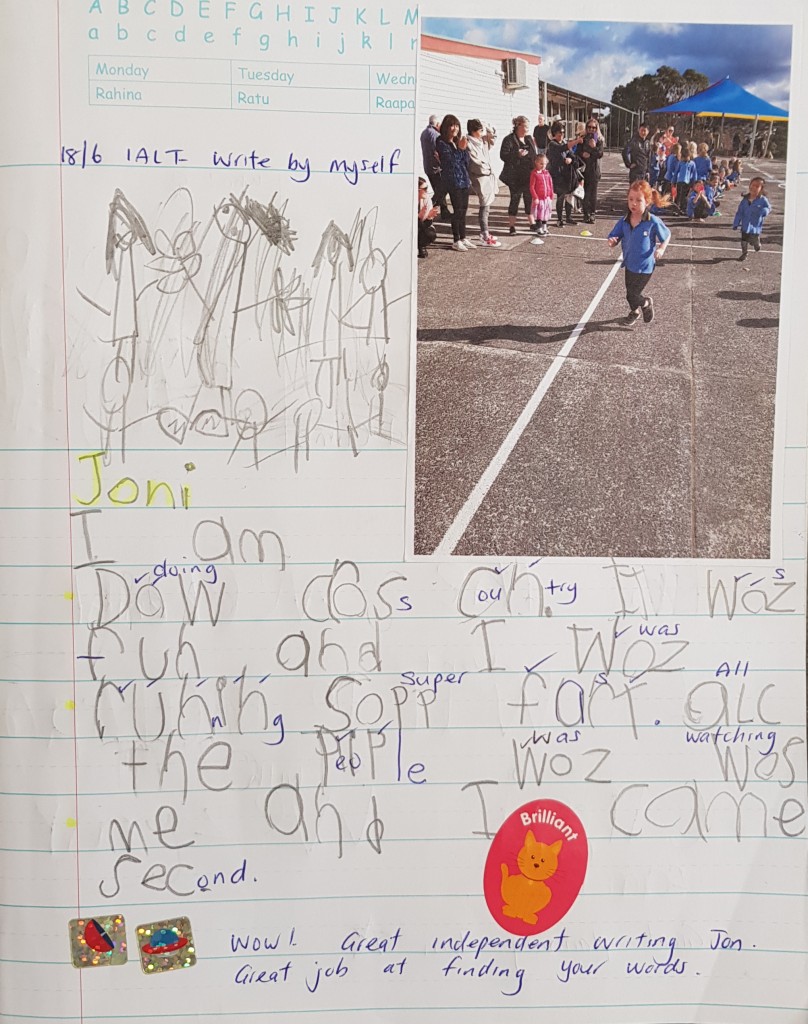 A B C D E F G H I J K L M
a b c d e f g h i j k l
Monday Tuesday Wedn
Rahina Ratu Raapa
18/6 IALT write by myself
Joni
I am
doing s
Dow coss country It woz
was
fun and I woz
Super All
runing Sopp fast. alc
was watching
the people woz wos
me and I came
Brilliant
second.
Wow! Great independent writing Jon.
Great job at finding your words.